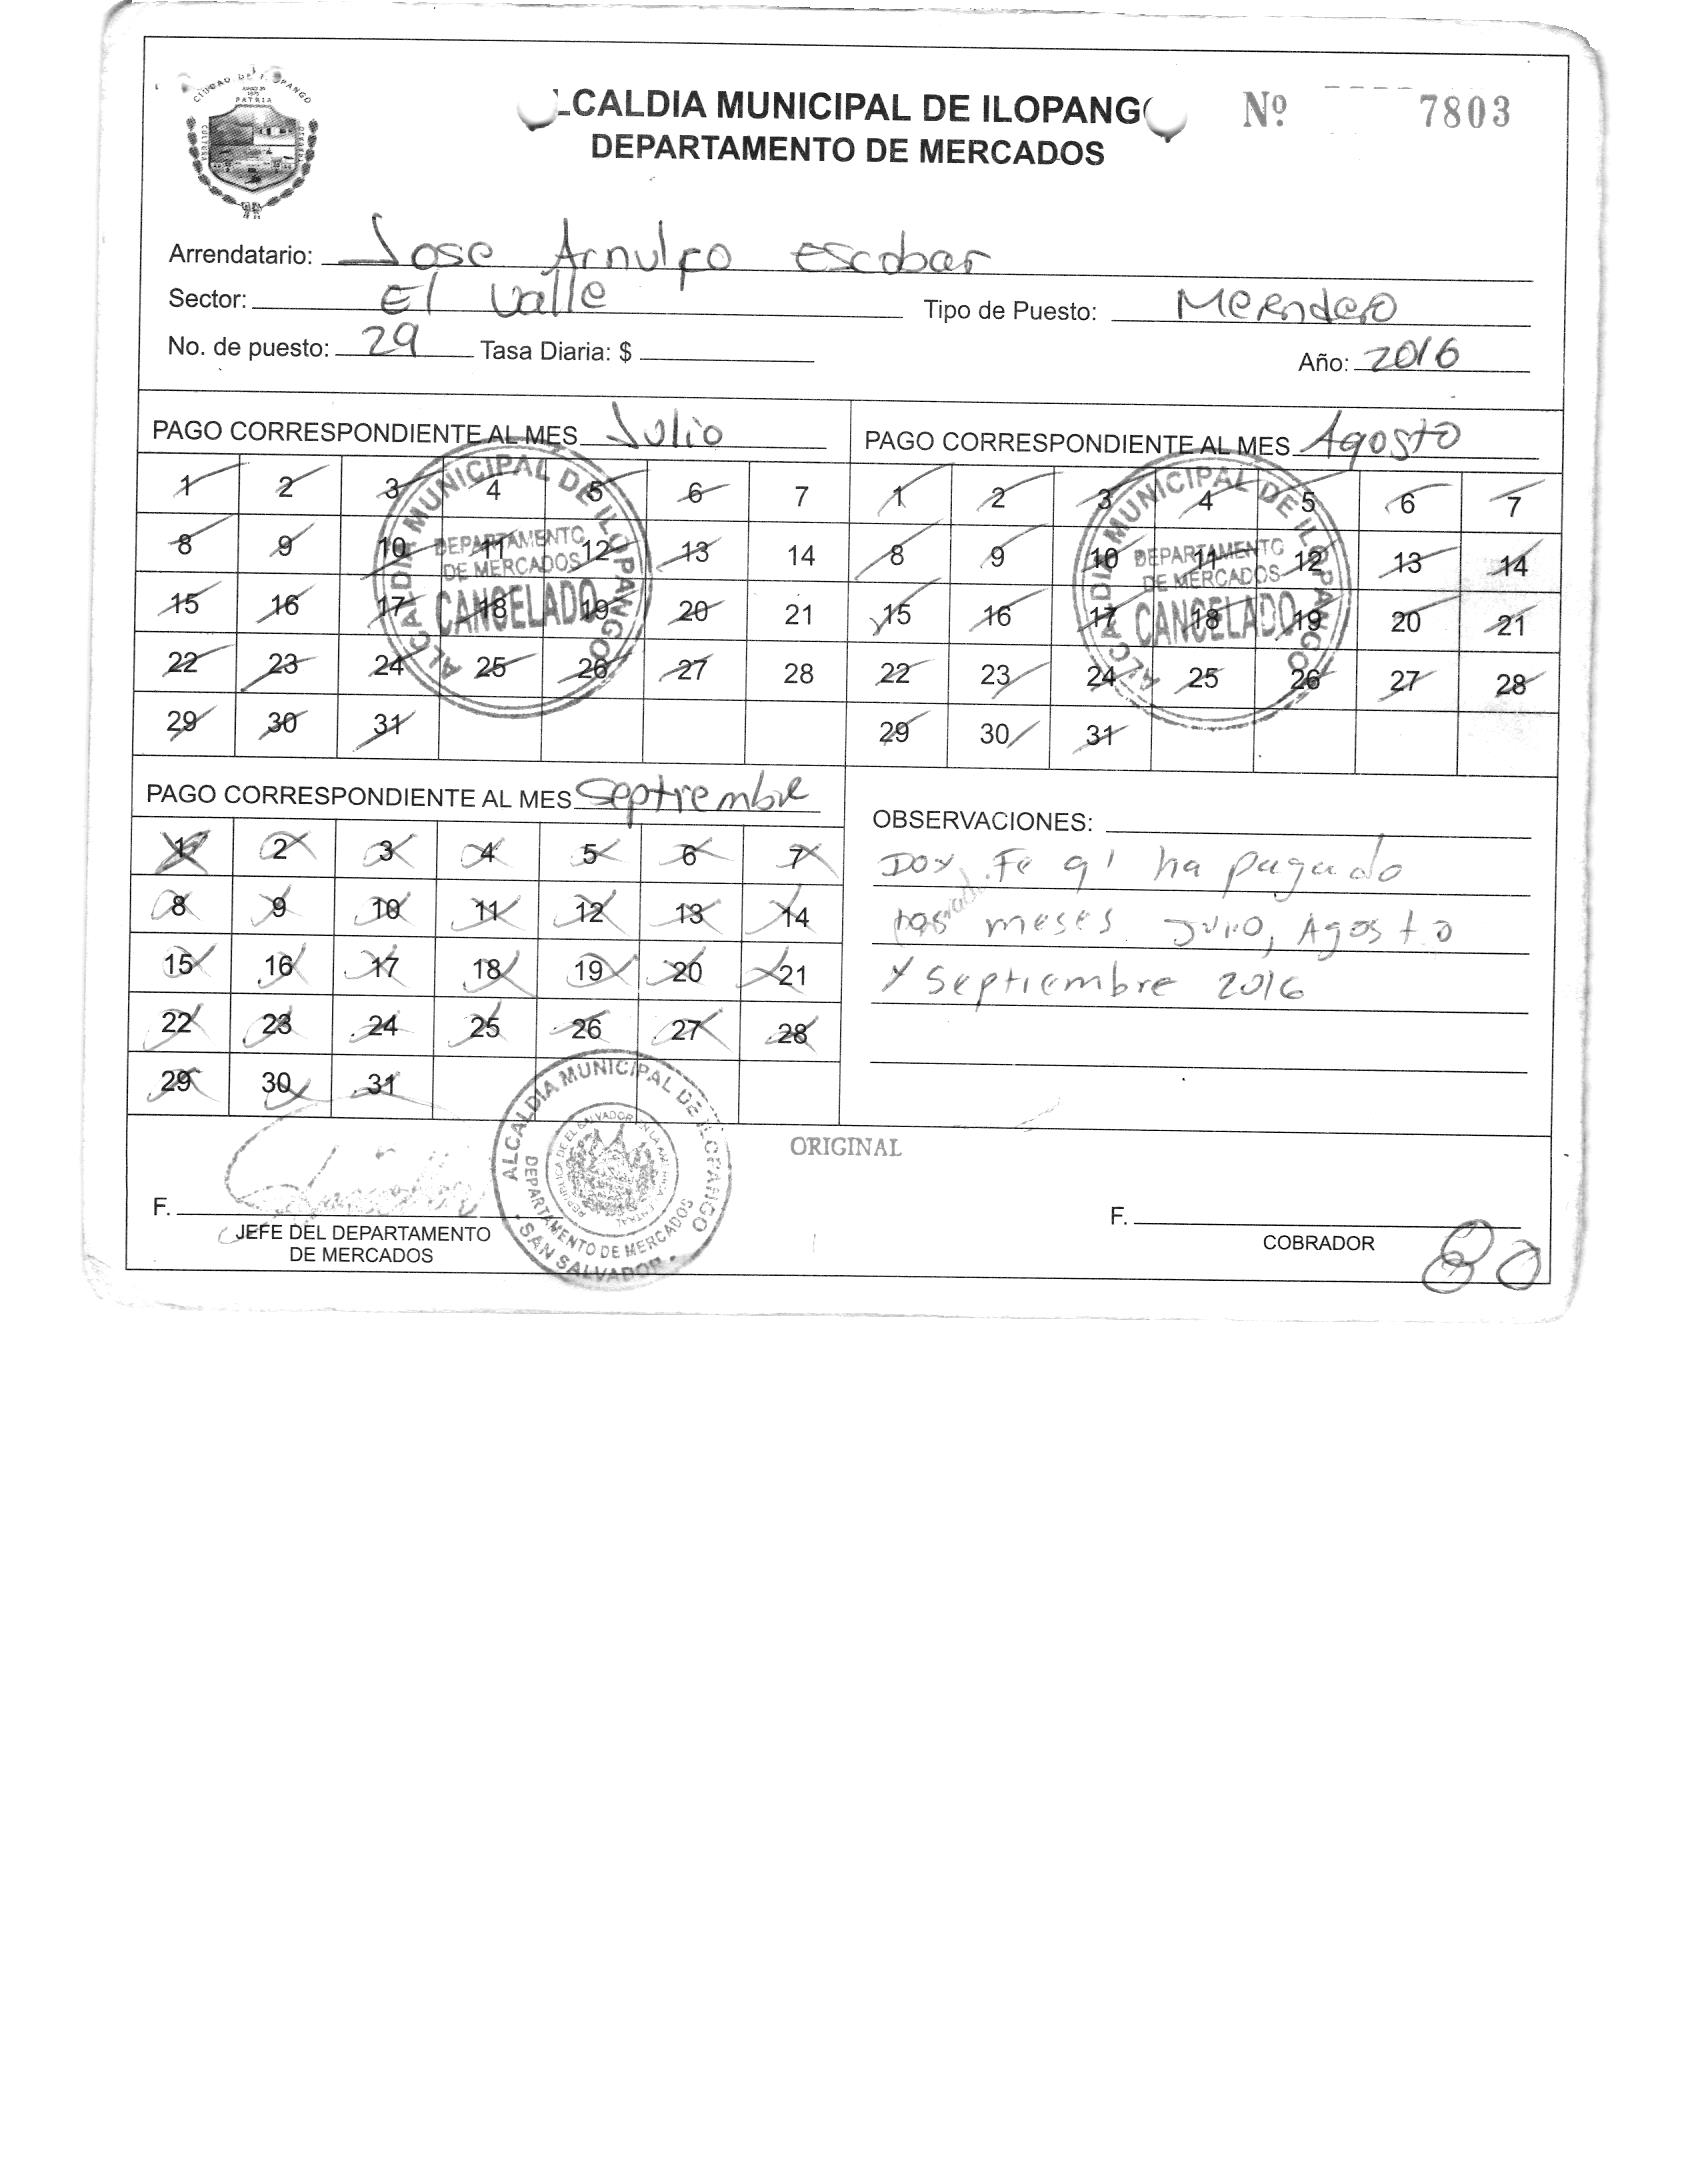 CIUDAD DE ILOPANGO
PATRIA
CULTURA
LCALDIA MUNICIPAL DE ILOPANG
DEPARTAMENTO DE MERCADOS
Nº 7803
Arrendatario: Jose Arnulfo Escobar
Sector: El Valle Tipo de Puesto: Merendero
No. de puesto: 29 Tasa Diaria: $ Año: 2016
PAGO CORRESPONDIENTE AL MES Julio
1 2 3 4 5 6 7
8 9 10 11 12 13 14
15 16 17 18 19 20 21
22 23 24 25 26 27 28
29 30 31
ALCALDIA MUNICIPAL DE ILOPANGO
DEPARTAMENTO
DE MERCADOS
CANCELADO
PAGO CORRESPONDIENTE AL MES Agosto
1 2 3 4 5 6 7
8 9 10 11 12 13 14
15 16 17 18 19 20 21
22 23 24 25 26 27 28
29 30 31
ALCALDIA MUNICIPAL DE ILOPANGO
DEPARTAMENTO
DE MERCADOS
CANCELADO
PAGO CORRESPONDIENTE AL MES Septiembre
1 2 3 4 5 6 7
8 9 10 11 12 13 14
15 16 17 18 19 20 21
22 23 24 25 26 27 28
29 30 31
OBSERVACIONES:
Doy Fe q' ha pagado
los meses Julio, Agosto
y Septiembre 2016
ALCALDIA MUNICIPAL DE ILOPANGO
REPUBLICA DE EL SALVADOR EN LA AMERICA CENTRAL
DEPARTAMENTO DE MERCADOS
SAN SALVADOR
ORIGINAL
F.
JEFE DEL DEPARTAMENTO
DE MERCADOS
F.
COBRADOR
80